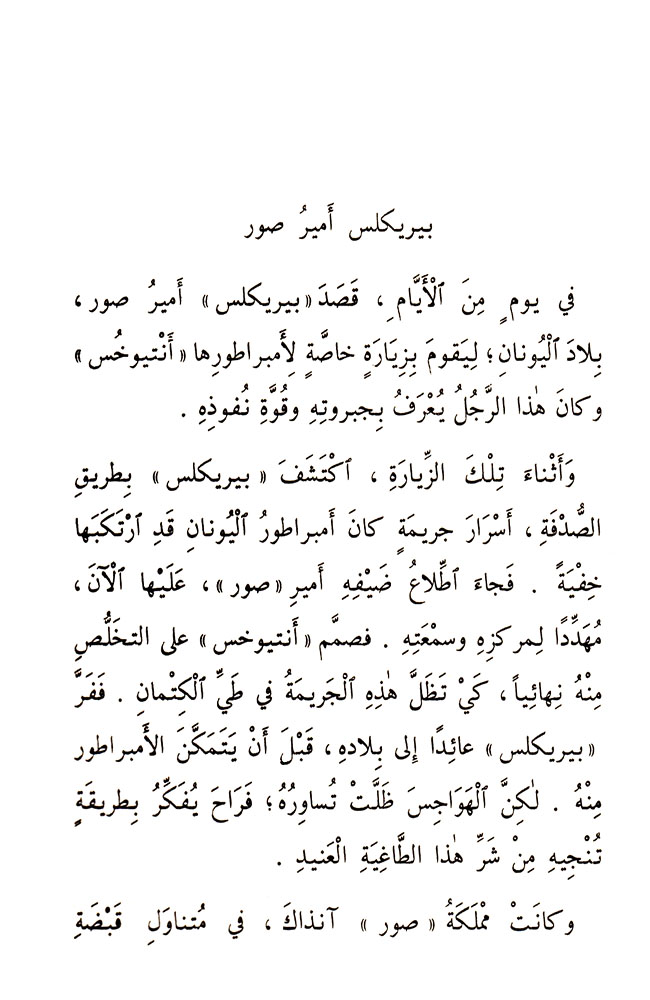 بيريكلس أَميرُ صور
في يومٍ مِنَ ٱلْأَيَّامِ ، قَصَدَ «بيريكلس» أَميرُ صور ،
بِلادَ ٱلْيُونانِ ؛ لِيَقومَ بِزِيَارَةٍ خاصَّةٍ لِأَمبراطورِها «أَنْتيوخُس»
وكانَ هٰذا الرَّجُلُ يُعْرَفُ بِجبروتِهِ وقُوَّةِ نُفوذِهِ .
وَأَثْناءَ تِلْكَ الزِّيارَةِ ، ٱكْتَشَفَ «بيريكلس» بِطريقِ
الصُّدْفَةِ ، أَسْرَارَ جريمَةٍ كانَ أَمبراطورُ ٱلْيُونانِ قَدِ ٱرْتَكَبَها
خِفْيَةً . فَجاءَ ٱطِّلاعُ ضَيْفِهِ أَميرِ «صور» ، عَلَيْها ٱلْآنَ ،
مُهَدِّدًا لِمركزِهِ وسمْعَتِهِ . فصمَّم «أَنتيوخس» على التخَلُّصِ
مِنْهُ نِهائِياً ، كَيْ تَظَلَّ هٰذِهِ ٱلْجَريمَةُ في طَيِّ ٱلْكِتْمانِ . فَفَرَّ
«بيريكلس» عائِدًا إِلى بِلادِهِ ، قَبْلَ أَنْ يَتَمَكَّنَ الأَمبراطور
مِنْهُ . لٰكِنَّ ٱلْهَوَاجِسَ ظَلَّتْ تُساوِرُهُ ؛ فَرَاحَ يُفَكِّرُ بِطريقَةٍ
تُنْجِيهِ مِنْ شَرِّ هٰذا الطَّاغِيَةِ الْعَنيدِ .
وكانَتْ مْملَكَةُ «صور» آنذاكَ ، في مُتناوَلِ قَبْضَةِ